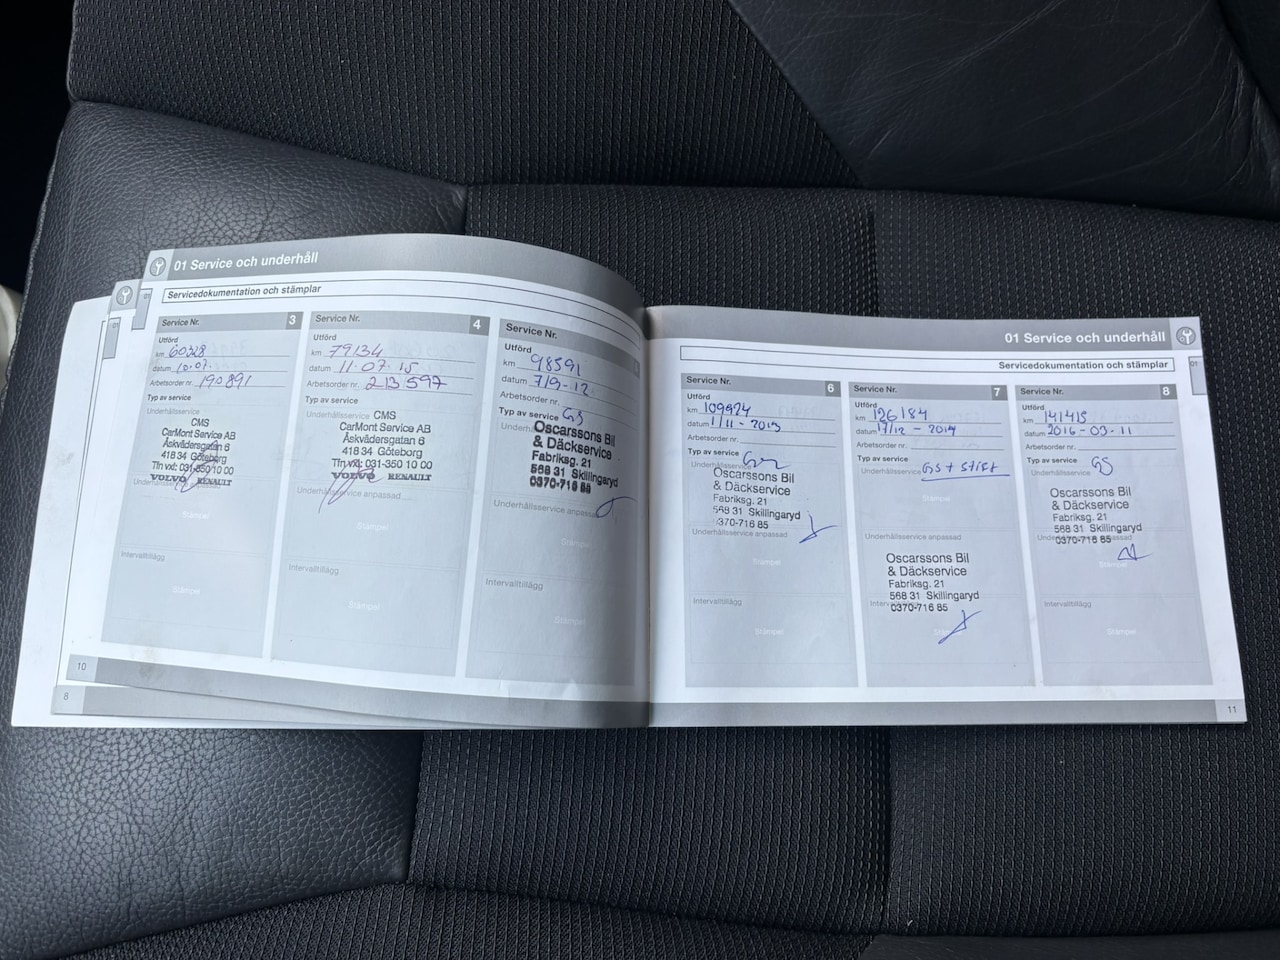 01 Service och underhåll
Servicedokumentation och stämplar
Service Nr. 3
Utförd
km 60328
datum 10.07.
Arbetsorder nr. 190891
Typ av service
Underhållsservice
CMS
CarMont Service AB
Åskvädersgatan 6
418 34 Göteborg
Tfn vxl: 031-350 10 00
VOLVO RENAULT
Underhållsservice anpassad
Stämpel
Intervalltillägg
Stämpel
Service Nr. 4
Utförd
km 79134
datum 11.07.15
Arbetsorder nr. 213597
Typ av service
Underhållsservice
CMS
CarMont Service AB
Åskvädersgatan 6
418 34 Göteborg
Tfn vxl: 031-350 10 00
VOLVO RENAULT
Underhållsservice anpassad
Stämpel
Intervalltillägg
Stämpel
Service Nr.
Utförd
km 98591
datum 7/9-12
Arbetsorder nr.
Typ av service GS
Underhållsservice
Oscarssons Bil
& Däckservice
Fabriksg. 21
568 31 Skillingaryd
0370-716 85
Underhållsservice anpassad
Stämpel
Intervalltillägg
Stämpel
10
8
01 Service och underhåll
Servicedokumentation och stämplar
Service Nr. 6
Utförd
km 109924
datum 1/11-2013
Arbetsorder nr.
Typ av service
Underhållsservice
Oscarssons Bil
& Däckservice
Fabriksg. 21
568 31 Skillingaryd
0370-716 85
Underhållsservice anpassad
Stämpel
Intervalltillägg
Stämpel
Service Nr. 7
Utförd
km 126184
datum 17/12-2014
Arbetsorder nr.
Typ av service
Underhållsservice GS + stift
Stämpel
Underhållsservice anpassad
Oscarssons Bil
& Däckservice
Fabriksg. 21
568 31 Skillingaryd
0370-716 85
Intervalltillägg
Stämpel
Service Nr. 8
Utförd
km 141415
datum 2016-03-11
Arbetsorder nr.
Typ av service GS
Underhållsservice
Oscarssons Bil
& Däckservice
Fabriksg. 21
568 31 Skillingaryd
0370-716 85
Stämpel
Intervalltillägg
Stämpel
11